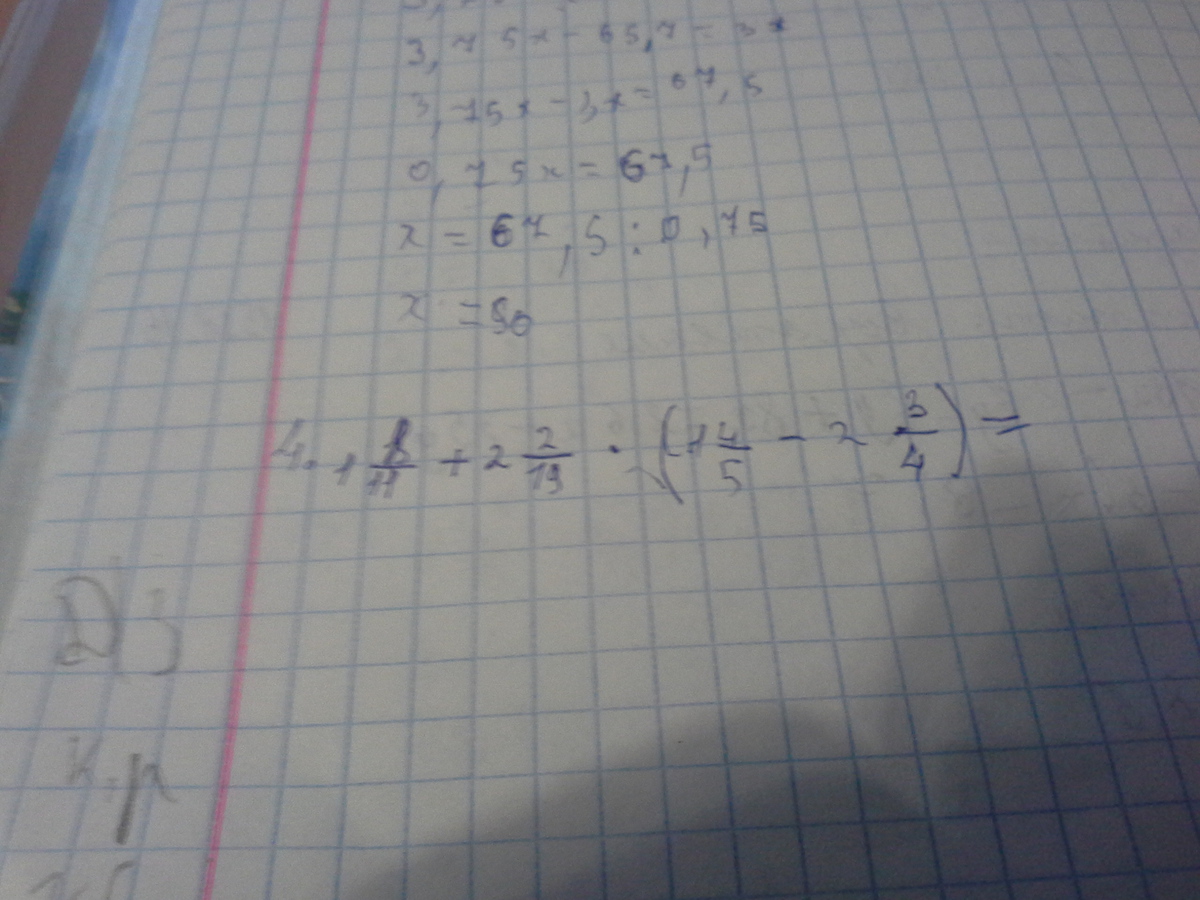 3,75x - 65,7 = 3x
3,75x - 3x = 67,5
0,75x = 67,5
x = 67,5 : 0,75
x = 90
4. 1 8/11 + 2 2/19 · (1 4/5 - 2 3/4) =
к.р